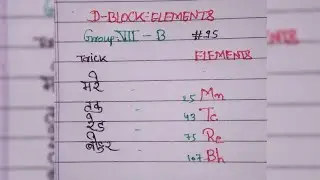 D-BLOCK-ELEMENTS
Group-VII-B #25
Trick ELEMENTS
मरे
तक 25 Mn
रेड 43 Tc
बेकर 75 Re
107 Bh